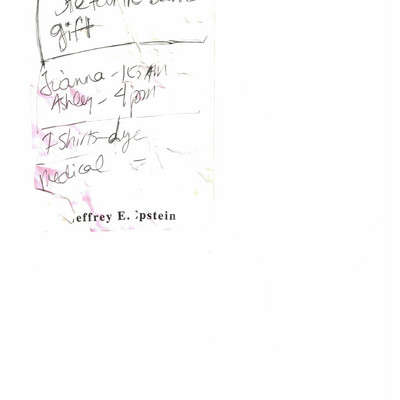 gift
Jianna -
Ashley - 4 pm
T-Shirts - dye
medical =
Jeffrey E. Epstein